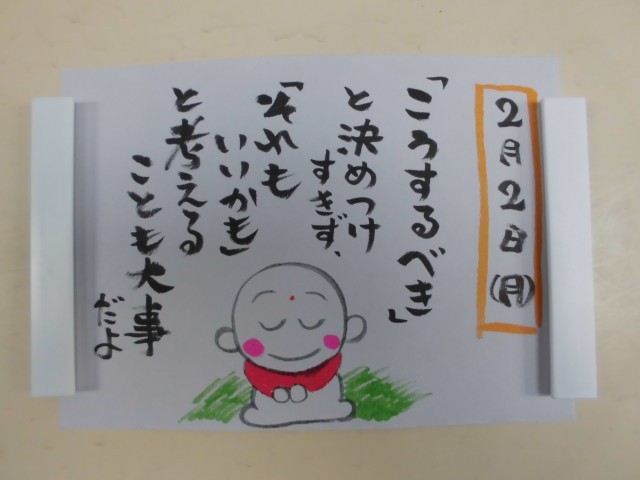 2月2日(月)
「こうするべき」
と決めつけ
すぎず、
「それも
いいかも」
と考える
ことも大事
だよ